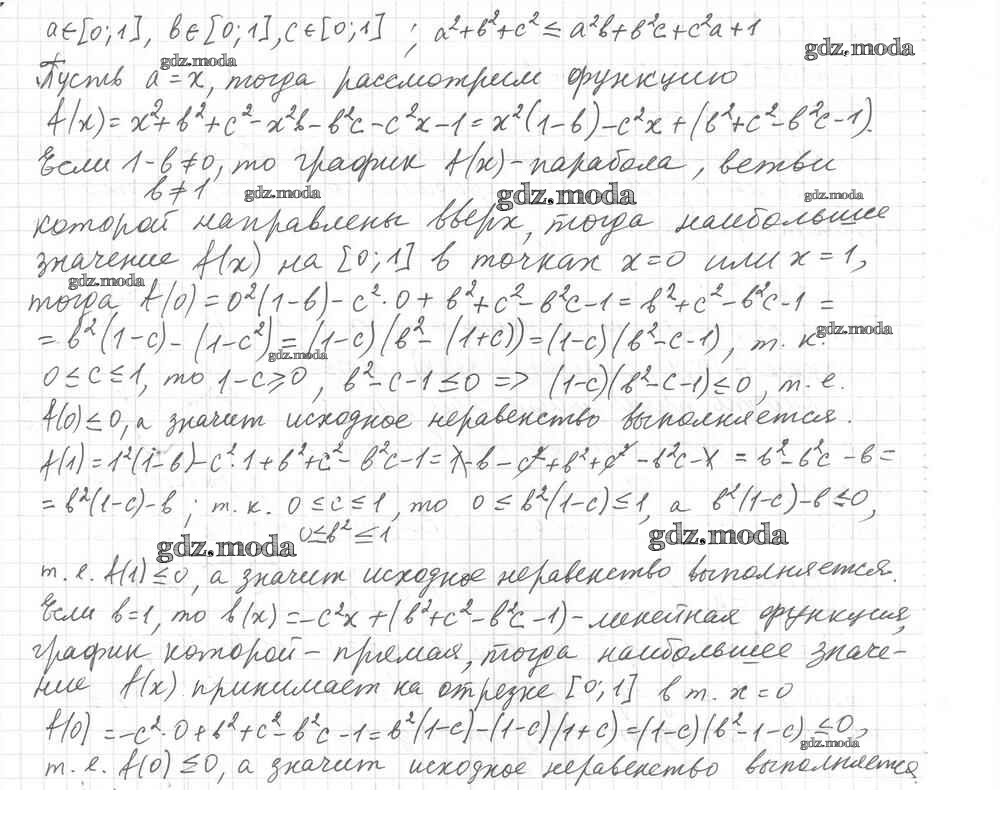 a∈[0;1], в∈[0;1], c∈[0;1] ; a²+в²+c² ≤ a²в+в²c+c²a+1
gdz.moda
gdz.moda
Пусть a=x, тогда рассмотрим функцию
f(x)=x²+в²+c²-x²в-в²c-c²x-1=x²(1-в)-c²x+(в²+c²-в²c-1).
Если 1-в≠0, то график f(x)-парабола, ветви
в≠1
gdz.moda
gdz.moda
gdz.moda
которой направлены вверх, тогда наибольшее
значение f(x) на [0;1] в точках x=0 или x=1,
gdz.moda
тогда f(0)=0²(1-в)-c²·0+в²+c²-в²c-1=в²+c²-в²c-1=
=в²(1-c)-(1-c²)=(1-c)(в²-(1+c))=(1-c)(в²-c-1), т.к.
gdz.moda
gdz.moda
0≤c≤1, то 1-c≥0, в²-c-1≤0 => (1-c)(в²-c-1)≤0, т.е.
f(0)≤0, а значит исходное неравенство выполняется.
f(1)=1²(1-в)-c²·1+в²+c²-в²c-1=1-в-c²+в²+c²-в²c-1=в²-в²c-в=
=в²(1-c)-в; т.к. 0≤c≤1, то 0≤в²(1-c)≤1, а в²(1-c)-в≤0,
0≤в²≤1
gdz.moda
gdz.moda
т.е. f(1)≤0, а значит исходное неравенство выполняется.
Если в=1, то в(x)=-c²x+(в²+c²-в²c-1)-линейная функция,
график которой-прямая, тогда наибольшее значе-
ние f(x) принимает на отрезке [0;1] в т. x=0
f(0)=-c²·0+в²+c²-в²c-1=в²(1-c)-(1-c)(1+c)=(1-c)(в²-1-c)≤0,
gdz.moda
т.е. f(0)≤0, а значит исходное неравенство выполняется